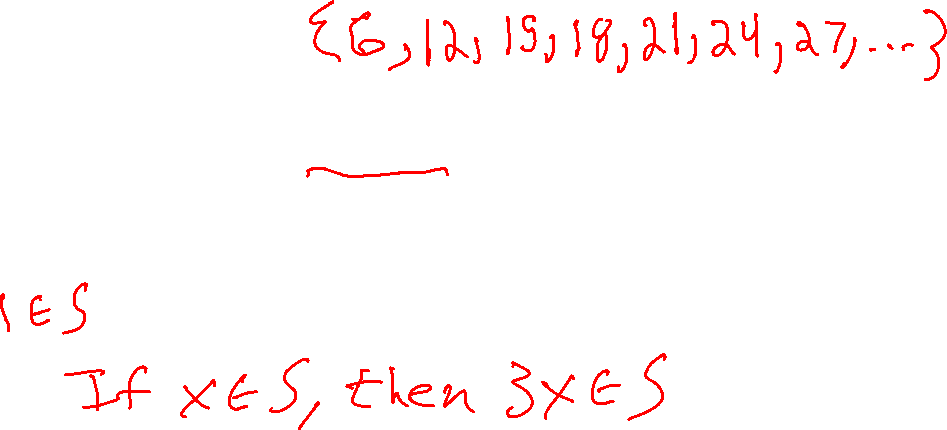 {6,12,15,18,21,24,27,...}
1∈S
If x∈S, then 3x∈S